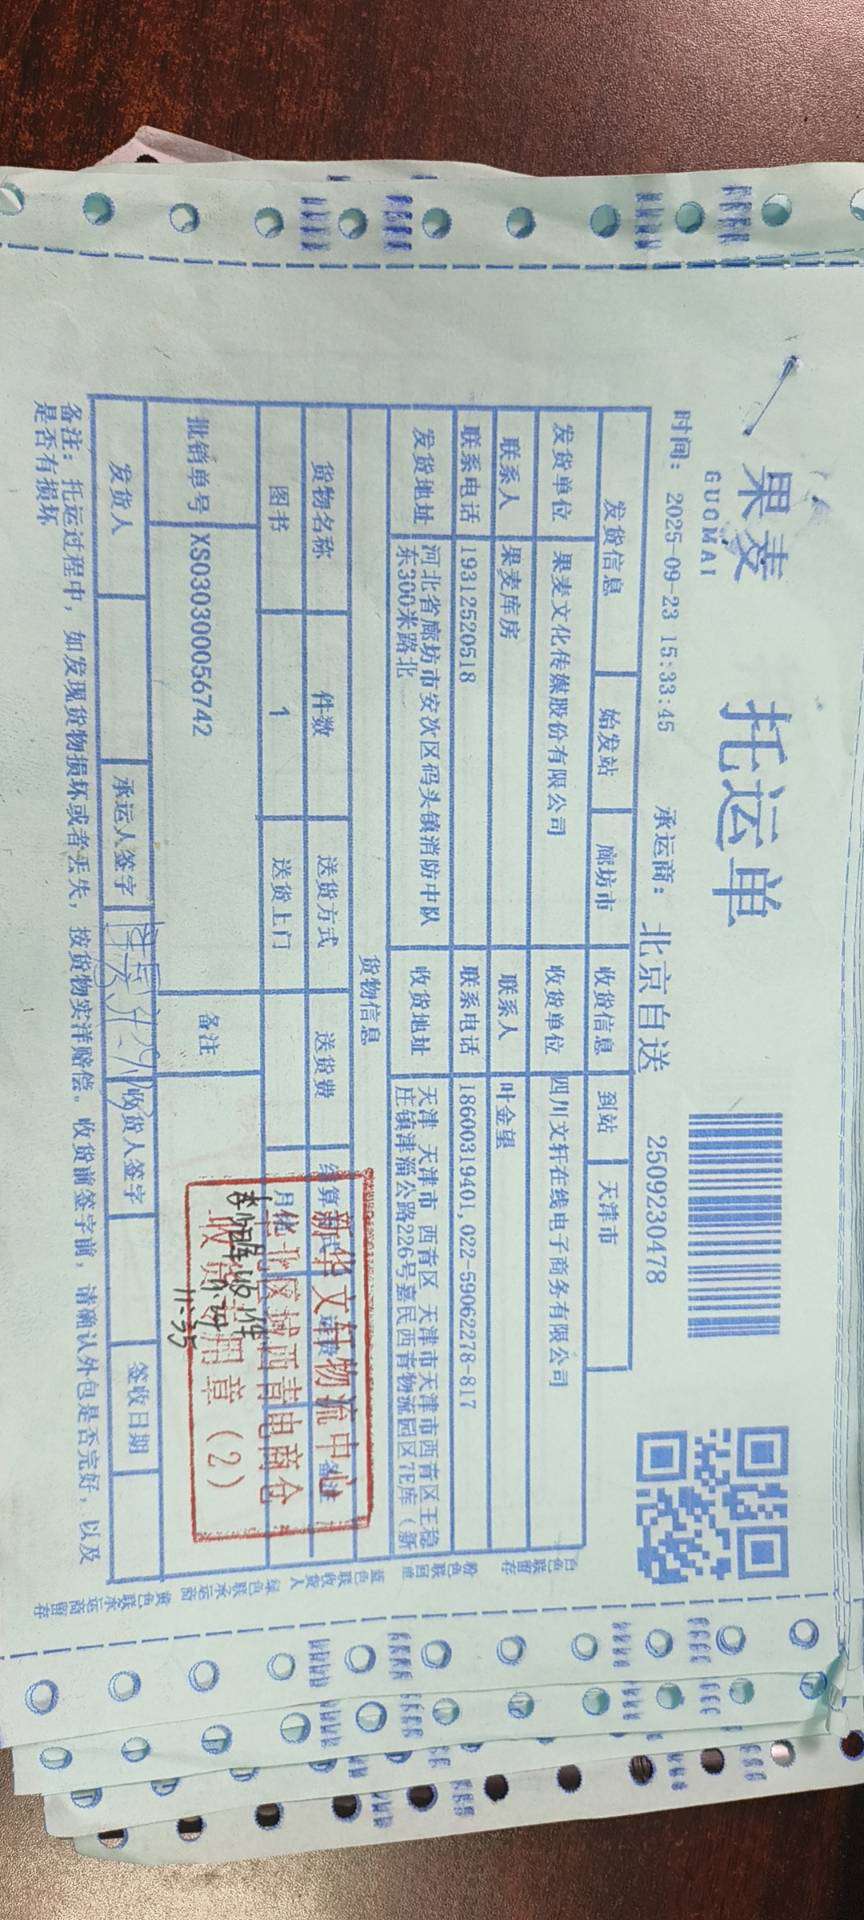 果麦
GUOMAI
托运单
时间：2025-09-23 15:33:45 承运商：北京自送 2509230478
发货信息 始发站 廊坊市 收货信息 到站 天津市
发货单位 果麦文化传媒股份有限公司 收货单位 四川文轩在线电子商务有限公司
联系人 果麦库房 联系人 叶金望
联系电话 19312520518 联系电话 18600319401,022-59062278-817
发货地址 河北省廊坊市安次区码头镇消防中队
东300米路北
收货地址 天津 天津市 西青区 天津市天津市西青区王稳
庄镇津淄公路226号嘉民西青物流园区7E库（新
货物信息
货物名称 件数 送货方式 送货费
图书 1 送货上门
批销单号 XS030300056742 备注
新华文轩物流中心
华北区域西青电商仓
收货专用章（2）
11:35
发货人 承运人签字 收货人签字 签收日期
备注：托运过程中，如发现货物损坏或者丢失，按货物实洋赔偿。收货前签字前，请确认外包是否完好，以及
是否有损坏
白色联留存 粉色联回单 蓝色联收货人 绿色联承运商 黄色联承运商留存